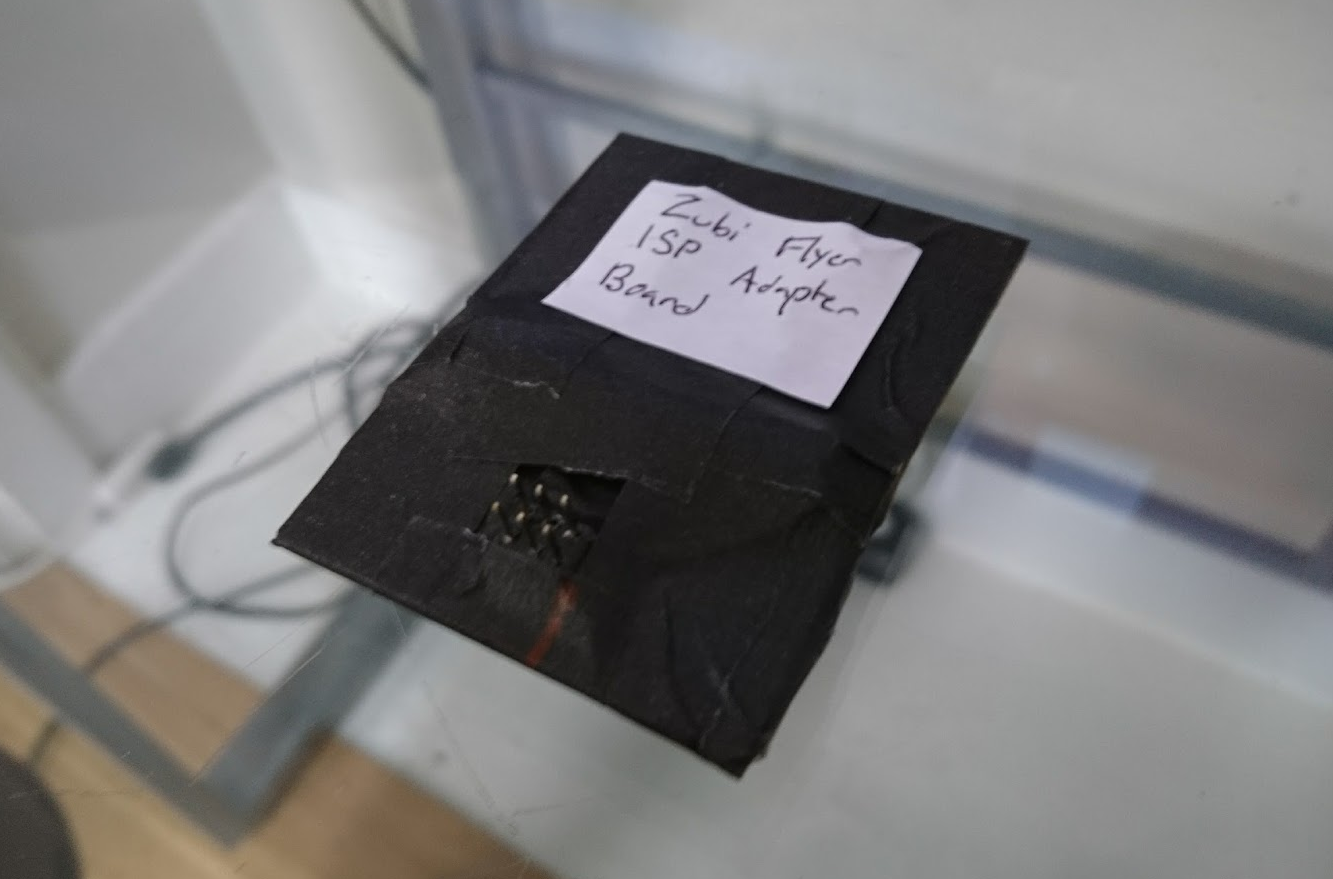 Zubi Flyer
ISP Adapter
Board